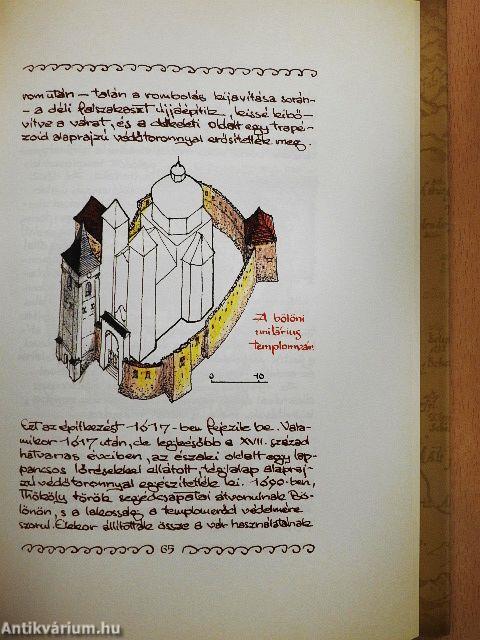 rom után – talán a rombolás kijavítása során–
– a déli falszakaszt újjáépítik, kissé kibő-
vítve a várat, és a délkeleti oldalt egy trape-
zoid alaprajzú védőtoronnyal erősítették meg.
A bölöni
unitárius
templomvár
0 10
Ezt az építkezést 1617-ben fejezik be. Vala-
mikor 1617 után, de legkésőbb a XVII. század
hatvanas éveiben, az északi oldalt egy lap-
pancsos lőrésekkel ellátott, téglalap alapraj-
zú védőtoronnyal egészítették ki. 1690-ben,
Thököly török segédcsapatai átvonulnak Bö-
lönön, s a lakosság a templomerőd védelmére
szorul. Ekkor állították össze a vár használatának
65
Antikvárium.hu